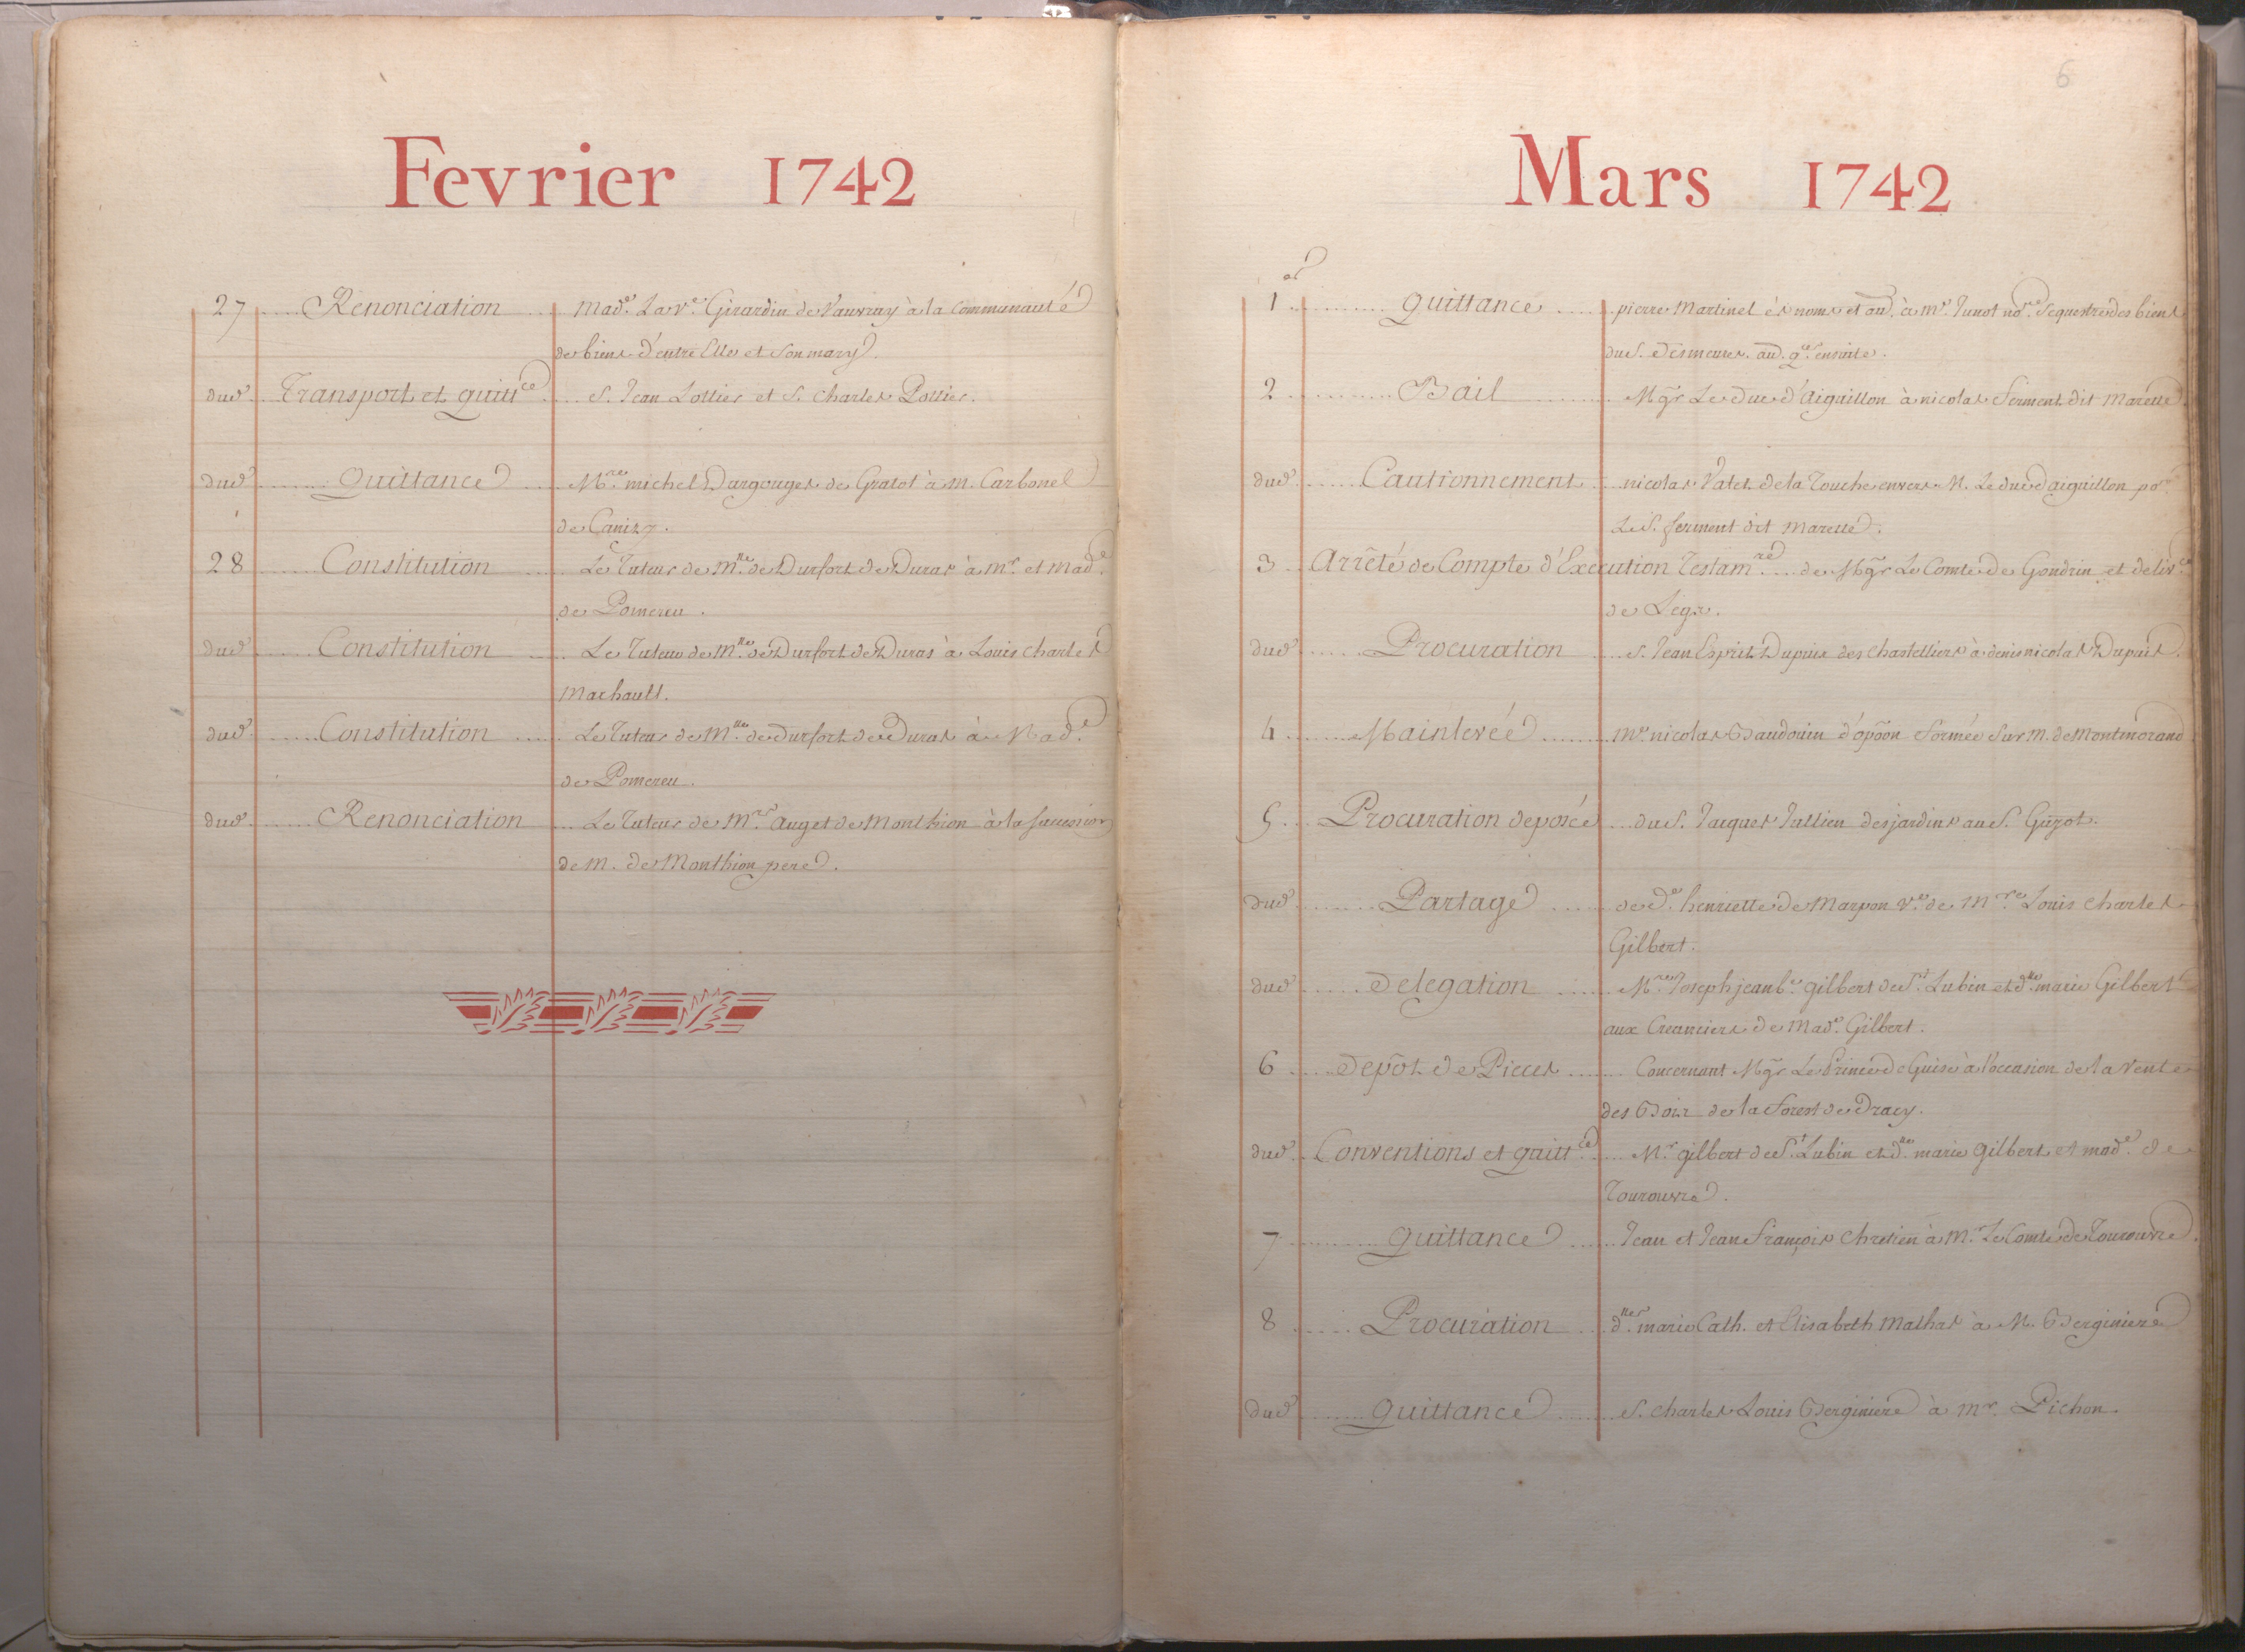 Fevrier 1742
27 Renonciation Mad.e La v.e Girardin de Vauvray à la Communauté
de biens d'entre Elle et son mary.
dud. Transport et quitt.ce S. Jean Lottier et S. Charles Pottier.
dud. Quittance M.re michel Durgouges de Gratot à m. Carbonel
de Canizy.
28 Constitution Le Tuteur de m.lle de Durfort de Duras à m.r et mad.e
de Pomereu.
dud. Constitution Le Tuteur de m.lle de Durfort de Duras à Louis charles
Machault.
dud. Constitution Le Tuteur de M.lle de Durfort de Duras à Mad.e
de Pomereu.
dud. Renonciation Le Tuteur de M.re auget de Monthion à la succession
de m. de Monthion pere.
6
Mars 1742
1.er quittance pierre Martinet és noms et au. à m.e Junot no.re Sequestre des biens
du S. Desmeures. au. q.ce ensuite.
2 Bail Mgr Le Duc d'Aiguillon à nicolas Serment dit Marette.
dud. Cautionnement nicolas Valet de la Touche envers M. Le duc d'aiguillon po.r
Le S. serment dit Marette.
3 Arrêté de Compte d'Execution Testam.re de Mgr Le Comte de Gondrin et deliv.ce
de Legs.
dud. Procuration S. Jean Esprit Dupuis des Chastelliers à denis nicolas Dupuis.
4 Mainlevée M.e nicolas Baudouin d'opõon formée sur m. de Montmorand
5 Procuration deposée du S. Jacques Jullien desjardins au S. Guyot.
dud. Partage de d.e henriette de Marpon v.e de M.re Louis charles
Gilbert.
dud. Delegation M.re Joseph jean b.e gilbert de S.t Lubin et d.lle marie Gilbert
aux Creanciers de Mad.e Gilbert.
6 Depôt de Pieces Concernant Mgr Le Prince de Guise à l'occasion de la Vente
des Bois de la forest de Dracy.
dud. Conventions et quitt.ce M.r gilbert de S.t Lubin et d.lle marie gilbert et mad.e de
Tourouvre.
7 Quittance Jean et Jean François Chretien à M. Le Comte de Tourouvre.
8 Procuration d.lles marie Cath. et Elisabeth Mathas à M. Berginiere
dud. Quittance S. charles Louis Berginiere à m.r Pichon.